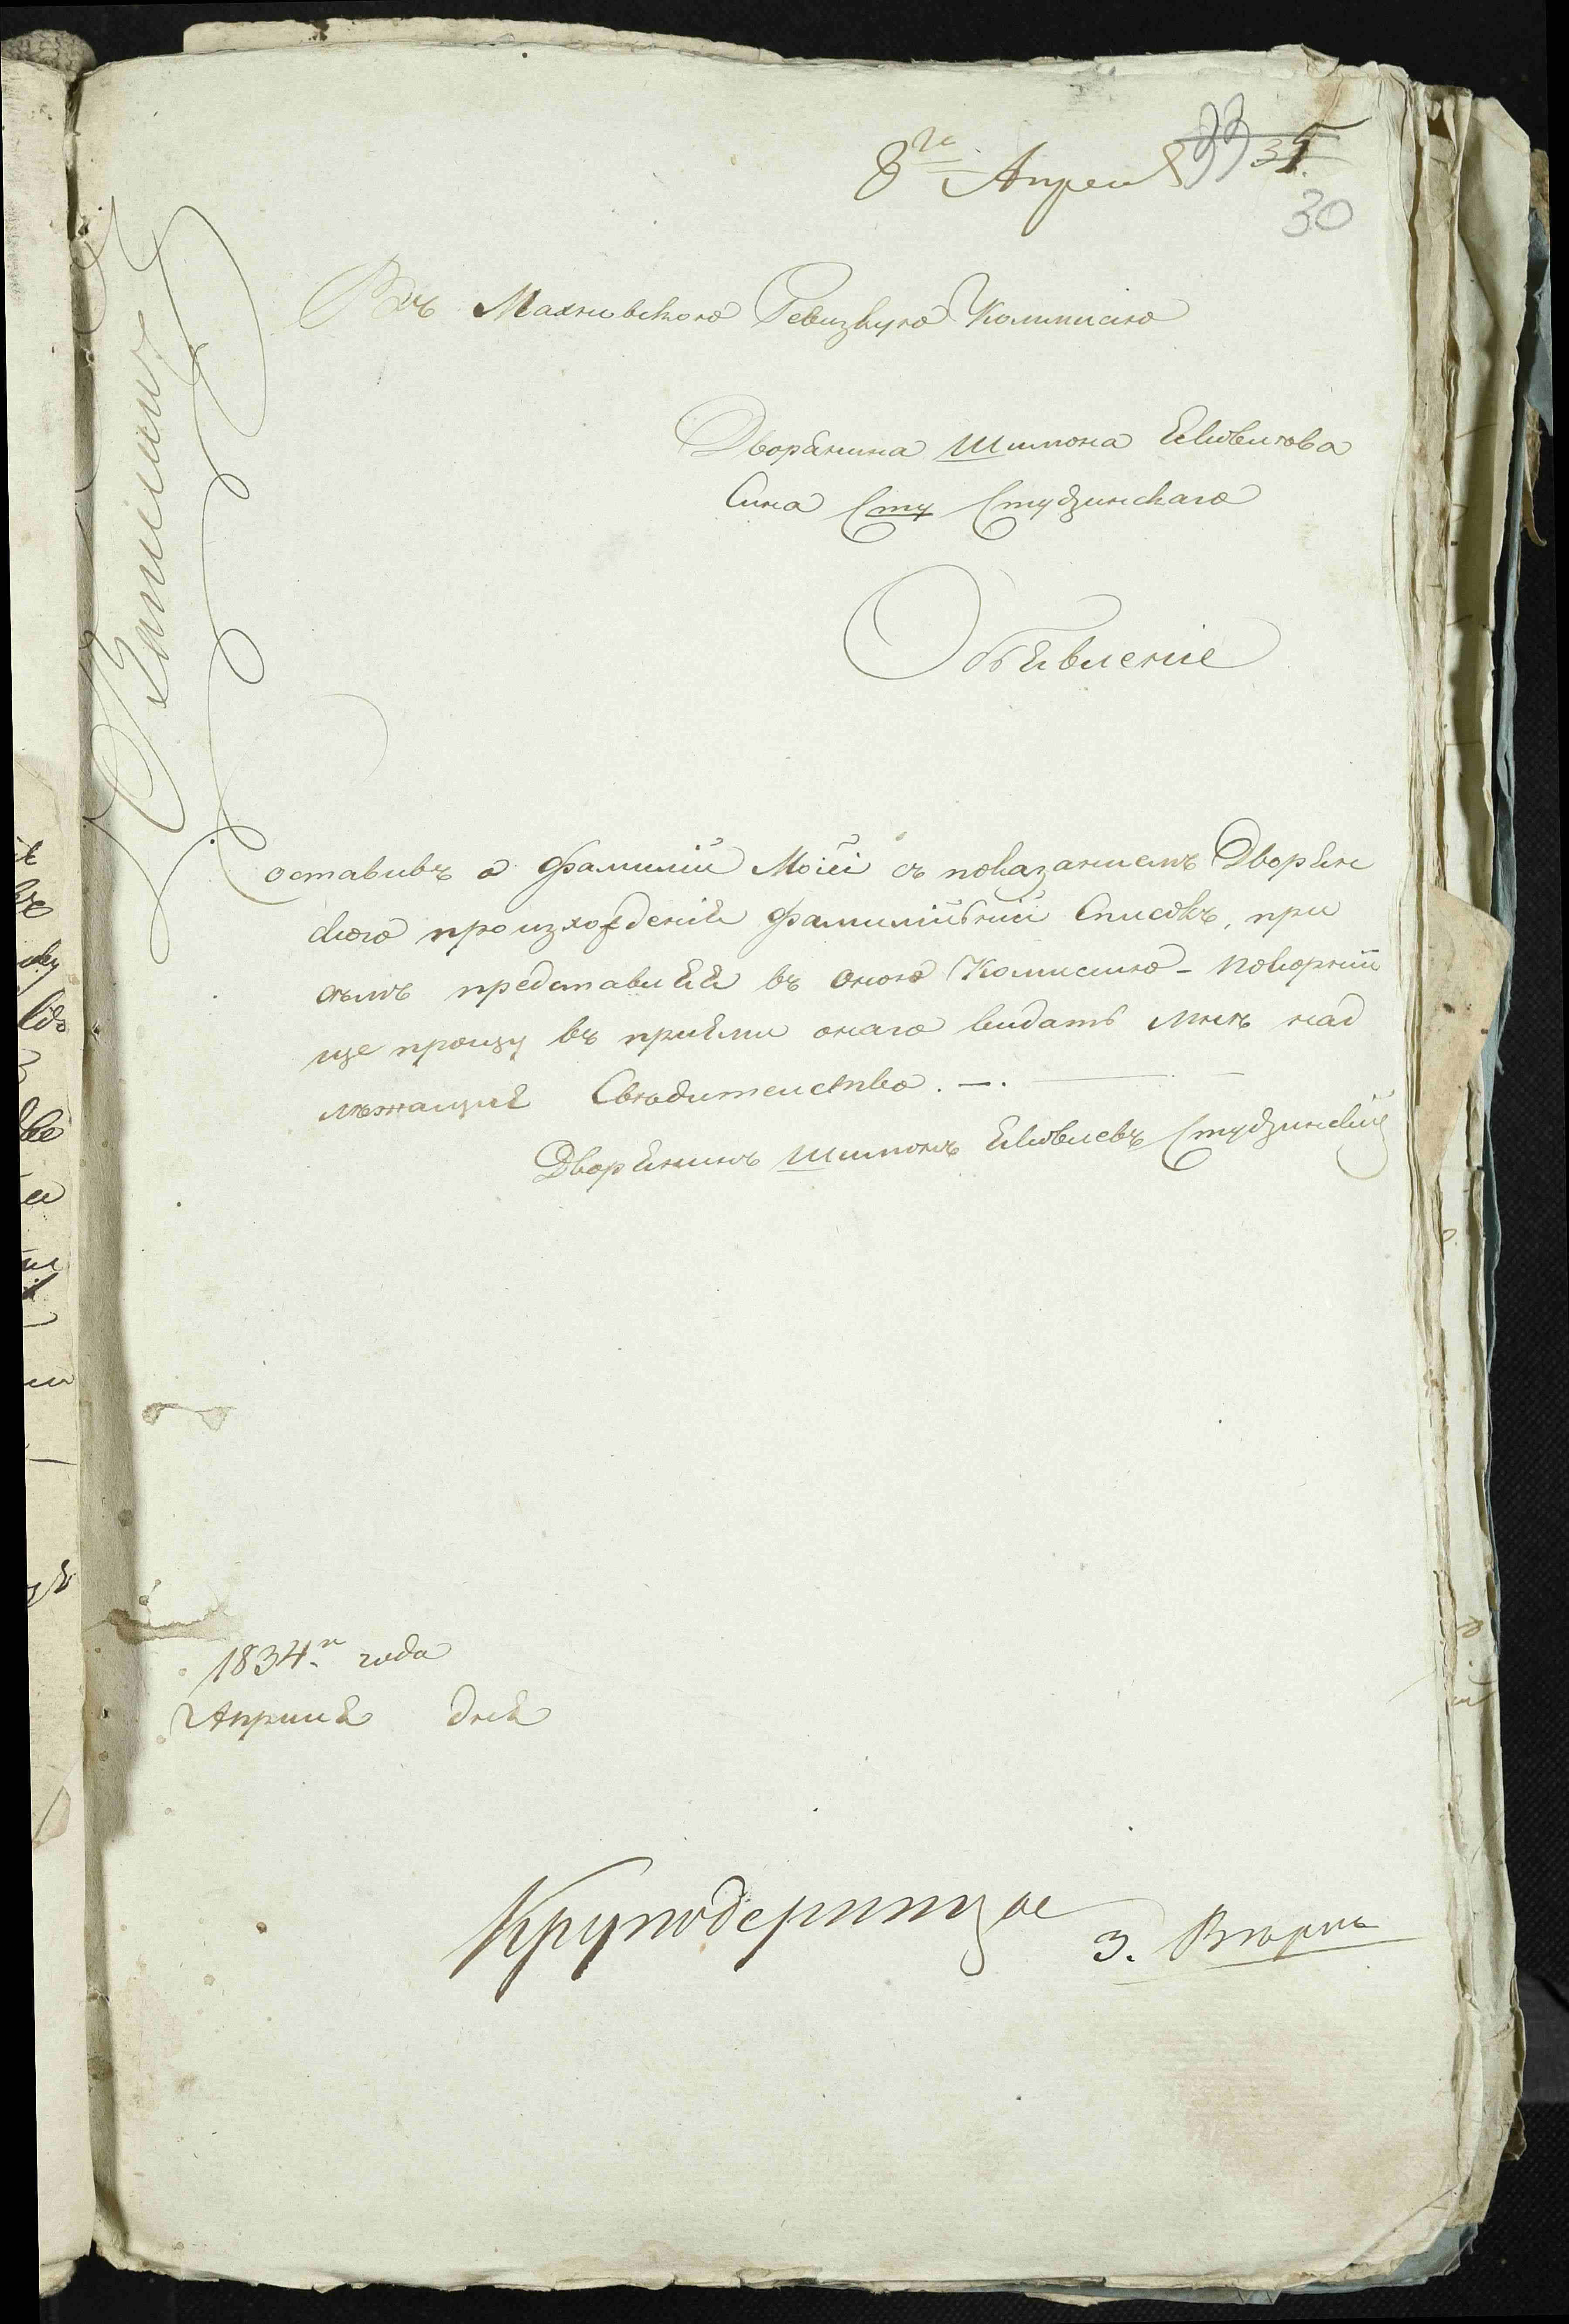 8го Апреля
33 35.
30
Въ Махновскою Ревизкую Коммисию
Дворянина Шимона Яковлюва
Сина Сту Студзинскаго
Объявленіе
Составивъ о фамилій Моей съ показаниемъ Дворян
скюго произхожденія фамилійний Списокъ, при
съмъ представляя въ оною Комисию - покорний
ще прошу въ приями онаго видать мнѣ над
лѣжащия Свѣдителство. —.
Дворянинъ Шимонъ Яковлевъ Студзинскій
1834го года
Априля дня
Круподеринцae
3.